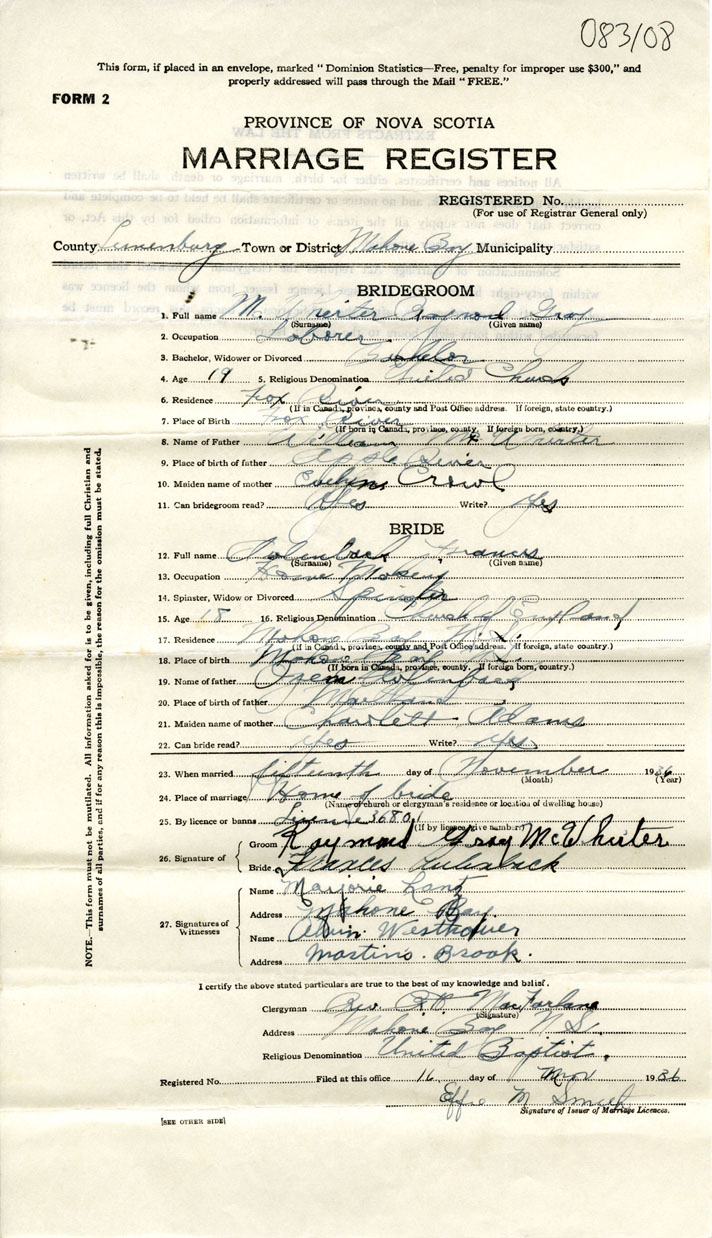 083/08
This form, if placed in an envelope, marked "Dominion Statistics—Free, penalty for improper use $300," and
properly addressed will pass through the Mail "FREE."
FORM 2
PROVINCE OF NOVA SCOTIA
MARRIAGE REGISTER
REGISTERED No.
(For use of Registrar General only)
County Lunenburg Town or District Mahone Bay Municipality
BRIDEGROOM
1. Full name McWhirter Raymond Gray
(Surname) (Given name)
2. Occupation Laborer
3. Bachelor, Widower or Divorced Bachelor
4. Age 19 5. Religious Denomination United Church
6. Residence Fox River
(If in Canada, province, county and Post Office address. If foreign, state country.)
7. Place of Birth Fox River
(If born in Canada, province, county. If foreign born, country.)
8. Name of Father William McWhirter
9. Place of birth of father Apple River
10. Maiden name of mother Evelyn
11. Can bridegroom read? Yes Write? Yes
BRIDE
12. Full name Frances
(Surname) (Given name)
13. Occupation Home
14. Spinster, Widow or Divorced Spinster
15. Age 18 16. Religious Denomination Church of England
17. Residence Mahone Bay N.S.
(If in Canada, province, county and Post Office address. If foreign, state country.)
18. Place of birth Mahone Bay
(If born in Canada, province, county. If foreign born, country.)
19. Name of father
20. Place of birth of father
21. Maiden name of mother Adams
22. Can bride read? Yes Write? Yes
23. When married fifteenth day of November 1936
(Month) (Year)
24. Place of marriage Home of bride
(Name of church or clergyman's residence or location of dwelling house)
25. By licence or banns License 36801
(If by licence give number)
26. Signature of
Groom Raymond Gray McWhirter
Bride Frances
27. Signatures of Witnesses
Name Marjorie Lantz
Address Mahone Bay.
Name Westhaver
Address Martins. Brook.
I certify the above stated particulars are true to the best of my knowledge and belief.
Clergyman Rev. MacFarlane
(Signature)
Address Mahone Bay N.S.
Religious Denomination United Baptist.
Registered No. Filed at this office 16 day of Nov 1936
Effie M Smith
Signature of Issuer of Marriage Licences.
[SEE OTHER SIDE]
NOTE.—This form must not be mutilated. All information asked for is to be given, including full Christian and
surnames of all parties, and if for any reason this is impossible, the reason for the omission must be stated.